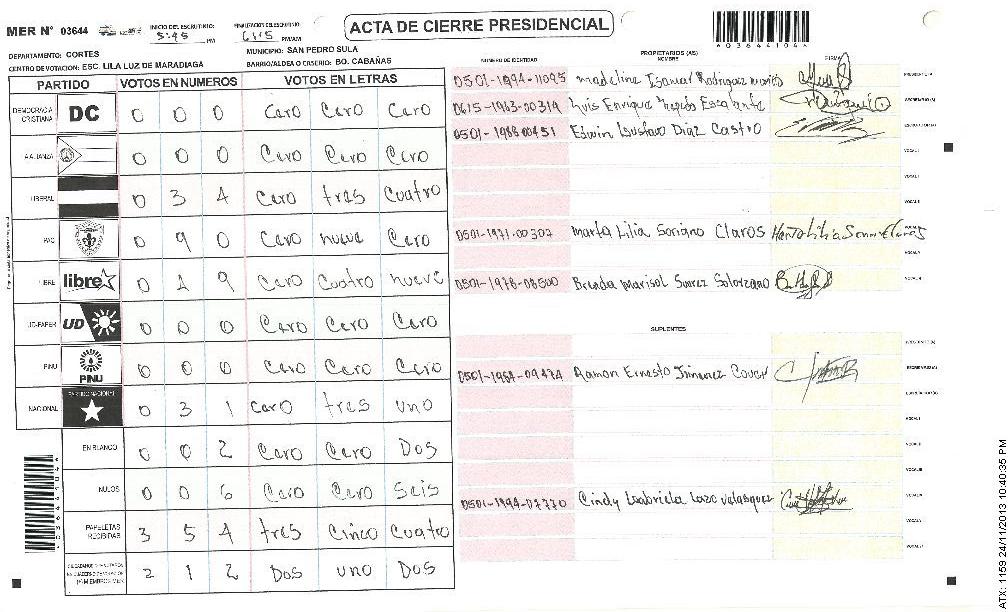 MER N° 03644
INICIO DEL ESCRUTINIO: 5:45 PM
FINALIZACION ESCRUTINIO 6:15 PM/AM
ACTA DE CIERRE PRESIDENCIAL
DEPARTAMENTO: CORTES
MUNICIPIO: SAN PEDRO SULA
CENTRO DE VOTACION: ESC. LILA LUZ DE MARADIAGA
BARRIO/ALDEA O CASERIO: BO. CABAÑAS
PARTIDO VOTOS EN NUMEROS VOTOS EN LETRAS
DEMOCRACIA CRISTIANA DC 0 0 0 Cero Cero Cero
ALIANZA 0 0 0 Cero Cero Cero
LIBERAL 0 3 4 Cero tres Cuatro
PAC 0 9 0 Cero nueve Cero
LIBRE libre 0 4 9 Cero Cuatro nueve
UD-FAPER UD 0 0 0 Cero Cero Cero
PINU PINU 0 0 0 Cero Cero Cero
NACIONAL PARTIDO NACIONAL 0 3 1 Cero tres uno
EN BLANCO 0 0 2 Cero Cero Dos
NULOS 0 0 6 Cero Cero Seis
PAPELETAS RECIBIDAS 3 5 4 tres Cinco Cuatro
2 1 2 Dos uno Dos
PROPIETARIOS (AS)
NUMERO DE IDENTIDAD NOMBRE FIRMA
0501-1994-11095 Madeline Isamar Rodriguez
0615-1963-00319 Luis Enrique Escalante
0501-1988-00451 Edwin Gustavo Diaz Castro
0501-1971-00307 Marta Lilia Soriano Claros
0501-1978-08500 Brenda Marisol Suarez Solorzano
SUPLENTES
0501-1984-09474 Ramon Ernesto Jimenez
0501-1994-07770 Cindy Gabriela Lazo Velasquez
ATX: 1159 24/11/2013 10:40:35 PM